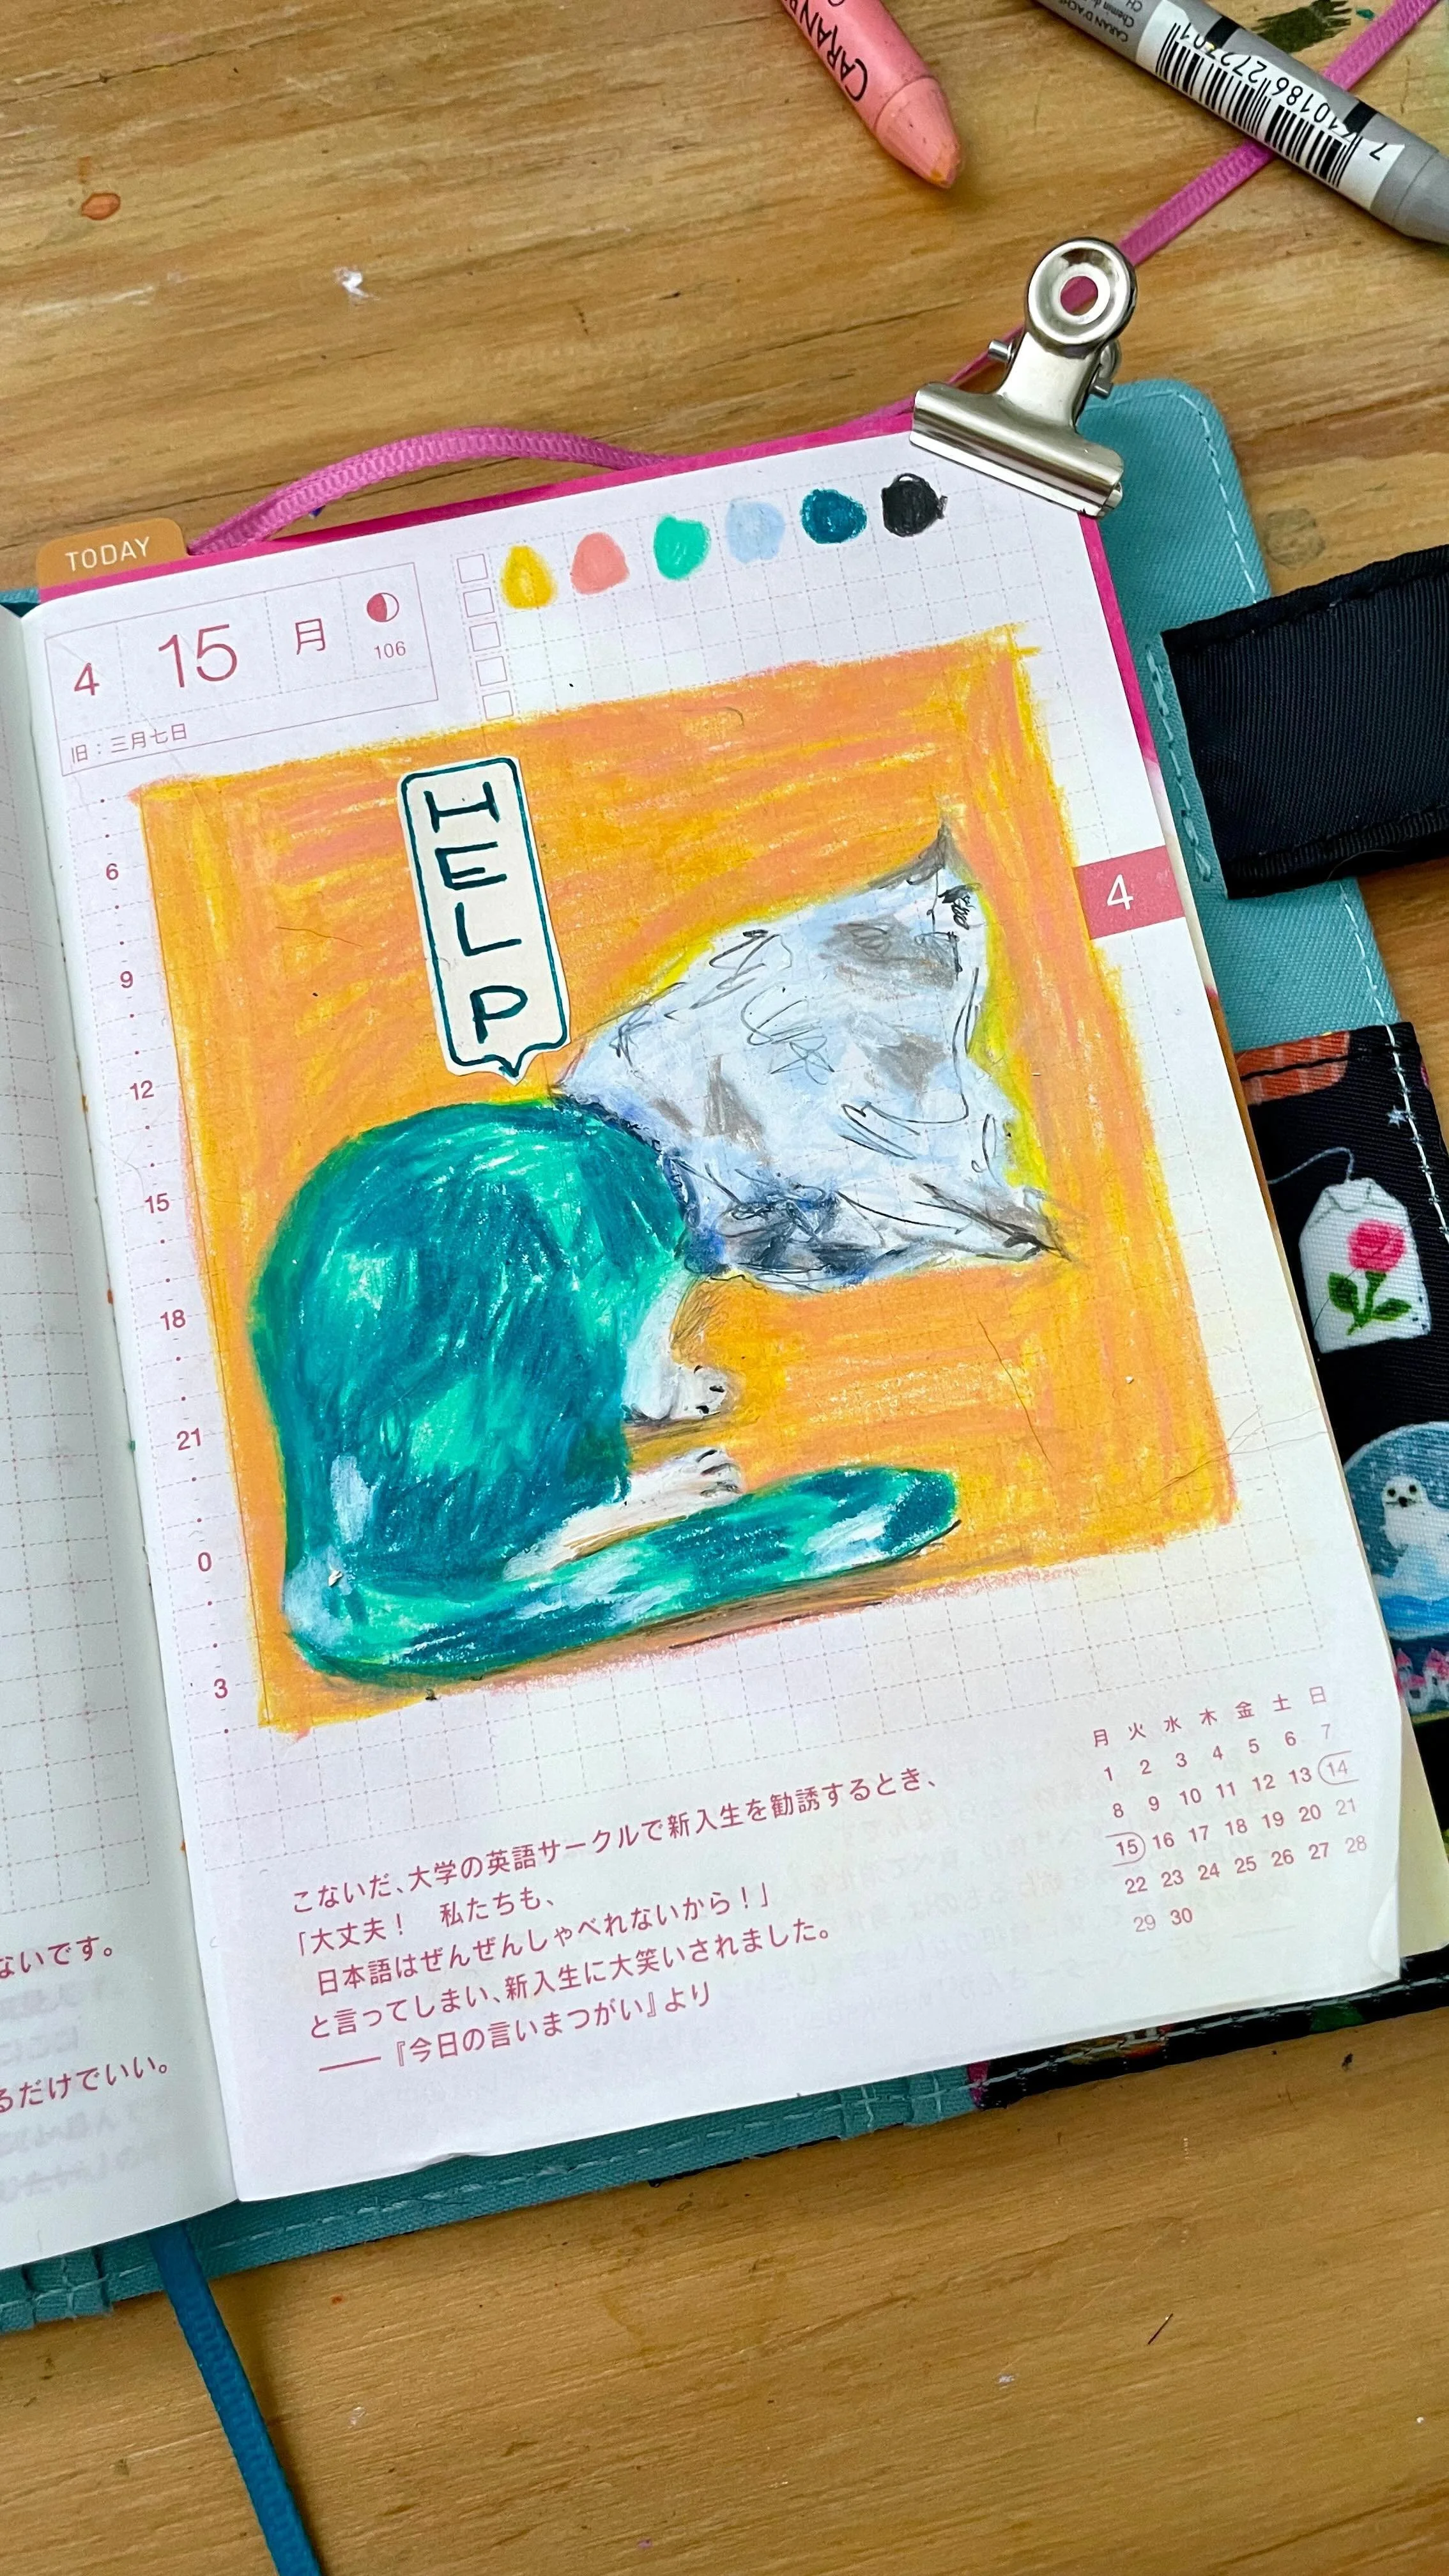 CARAN
CARAN D'ACHE
Chemin du
CH
7 10186 272701
TODAY
4 15 月
106
旧：三月七日
HELP
4
6
9
12
15
18
21
0
3
月 火 水 木 金 土 日
1 2 3 4 5 6 7
8 9 10 11 12 13 14
15 16 17 18 19 20 21
22 23 24 25 26 27 28
29 30
こないだ、大学の英語サークルで新入生を勧誘するとき、
「大丈夫！　私たちも、
日本語はぜんぜんしゃべれないから！」
と言ってしまい、新入生に大笑いされました。
──『今日の言いまつがい』より
ないです。
るだけでいい。